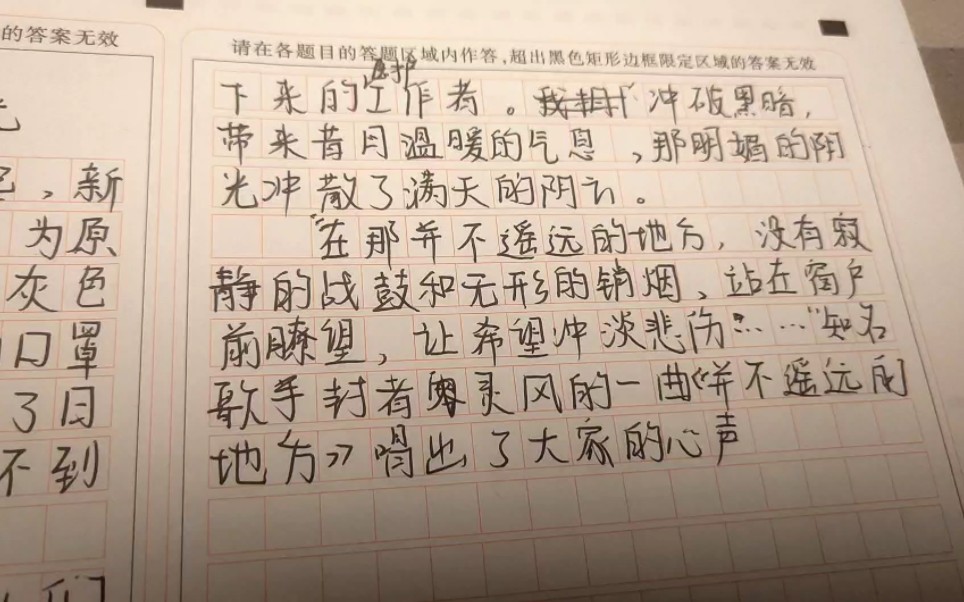 的答案无效
请在各题目的答题区域内作答,超出黑色矩形边框限定区域的答案无效
医护
下来的工作者。冲破黑暗,
带来昔日温暖的气息,那明媚的阳
光冲散了满天的阴云。
"在那并不遥远的地方,没有寂
静的战鼓和无形的销烟、站在窗户
前瞭望,让希望冲淡悲伤……"知名
歌手封者灵风的一曲《并不遥远的
地方》唱出了大家的心声
,新
为原
灰色
口罩
了日
不到
们